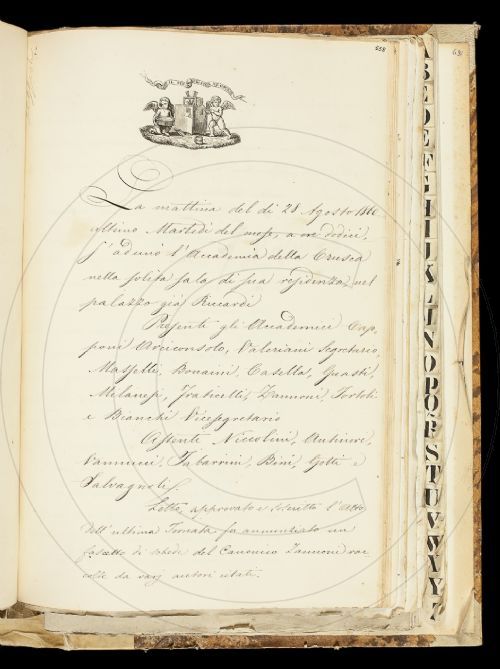 558
La mattina del dì 28 Agosto 1860
ultimo Martedì del mese, a ore dodici,
s'adunò l'Accademia della Crusca
nella solita sala di sua residenza, nel
palazzo già Riccardi
Presenti gli Accademici Cap-
poni Arciconsolo, Valeriani Segretario,
Masselli, Bonaini, Casella, Guasti,
Milanesi, Fraticelli, Zannoni, Tortoli
e Bianchi Vicesegretario
Assente Niccolini, Antinori,
Vannucci, Tabarrini, Bini, Gotti e
Salvagnoli.
Letto, approvato e l'Atto
dell'ultima Tornata, fu annunziato un
fascetto di schede del Canonico Zannoni rac-
colte da varj autori citati.
A
B
E
D
E
F
G
H
I
J
K
L
I
N
O
P
Q
R
S
T
U
V
W
Y
Z